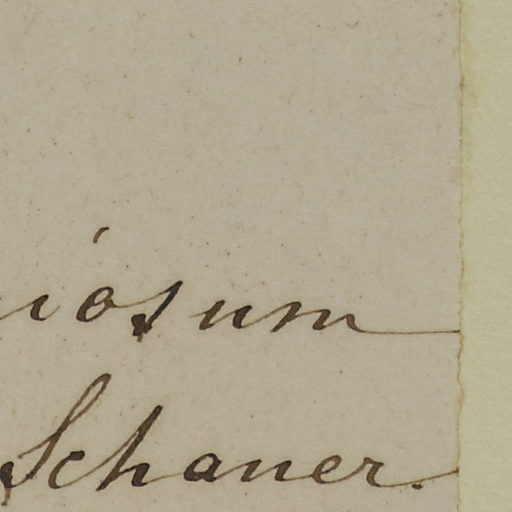 iosum
Schauer.